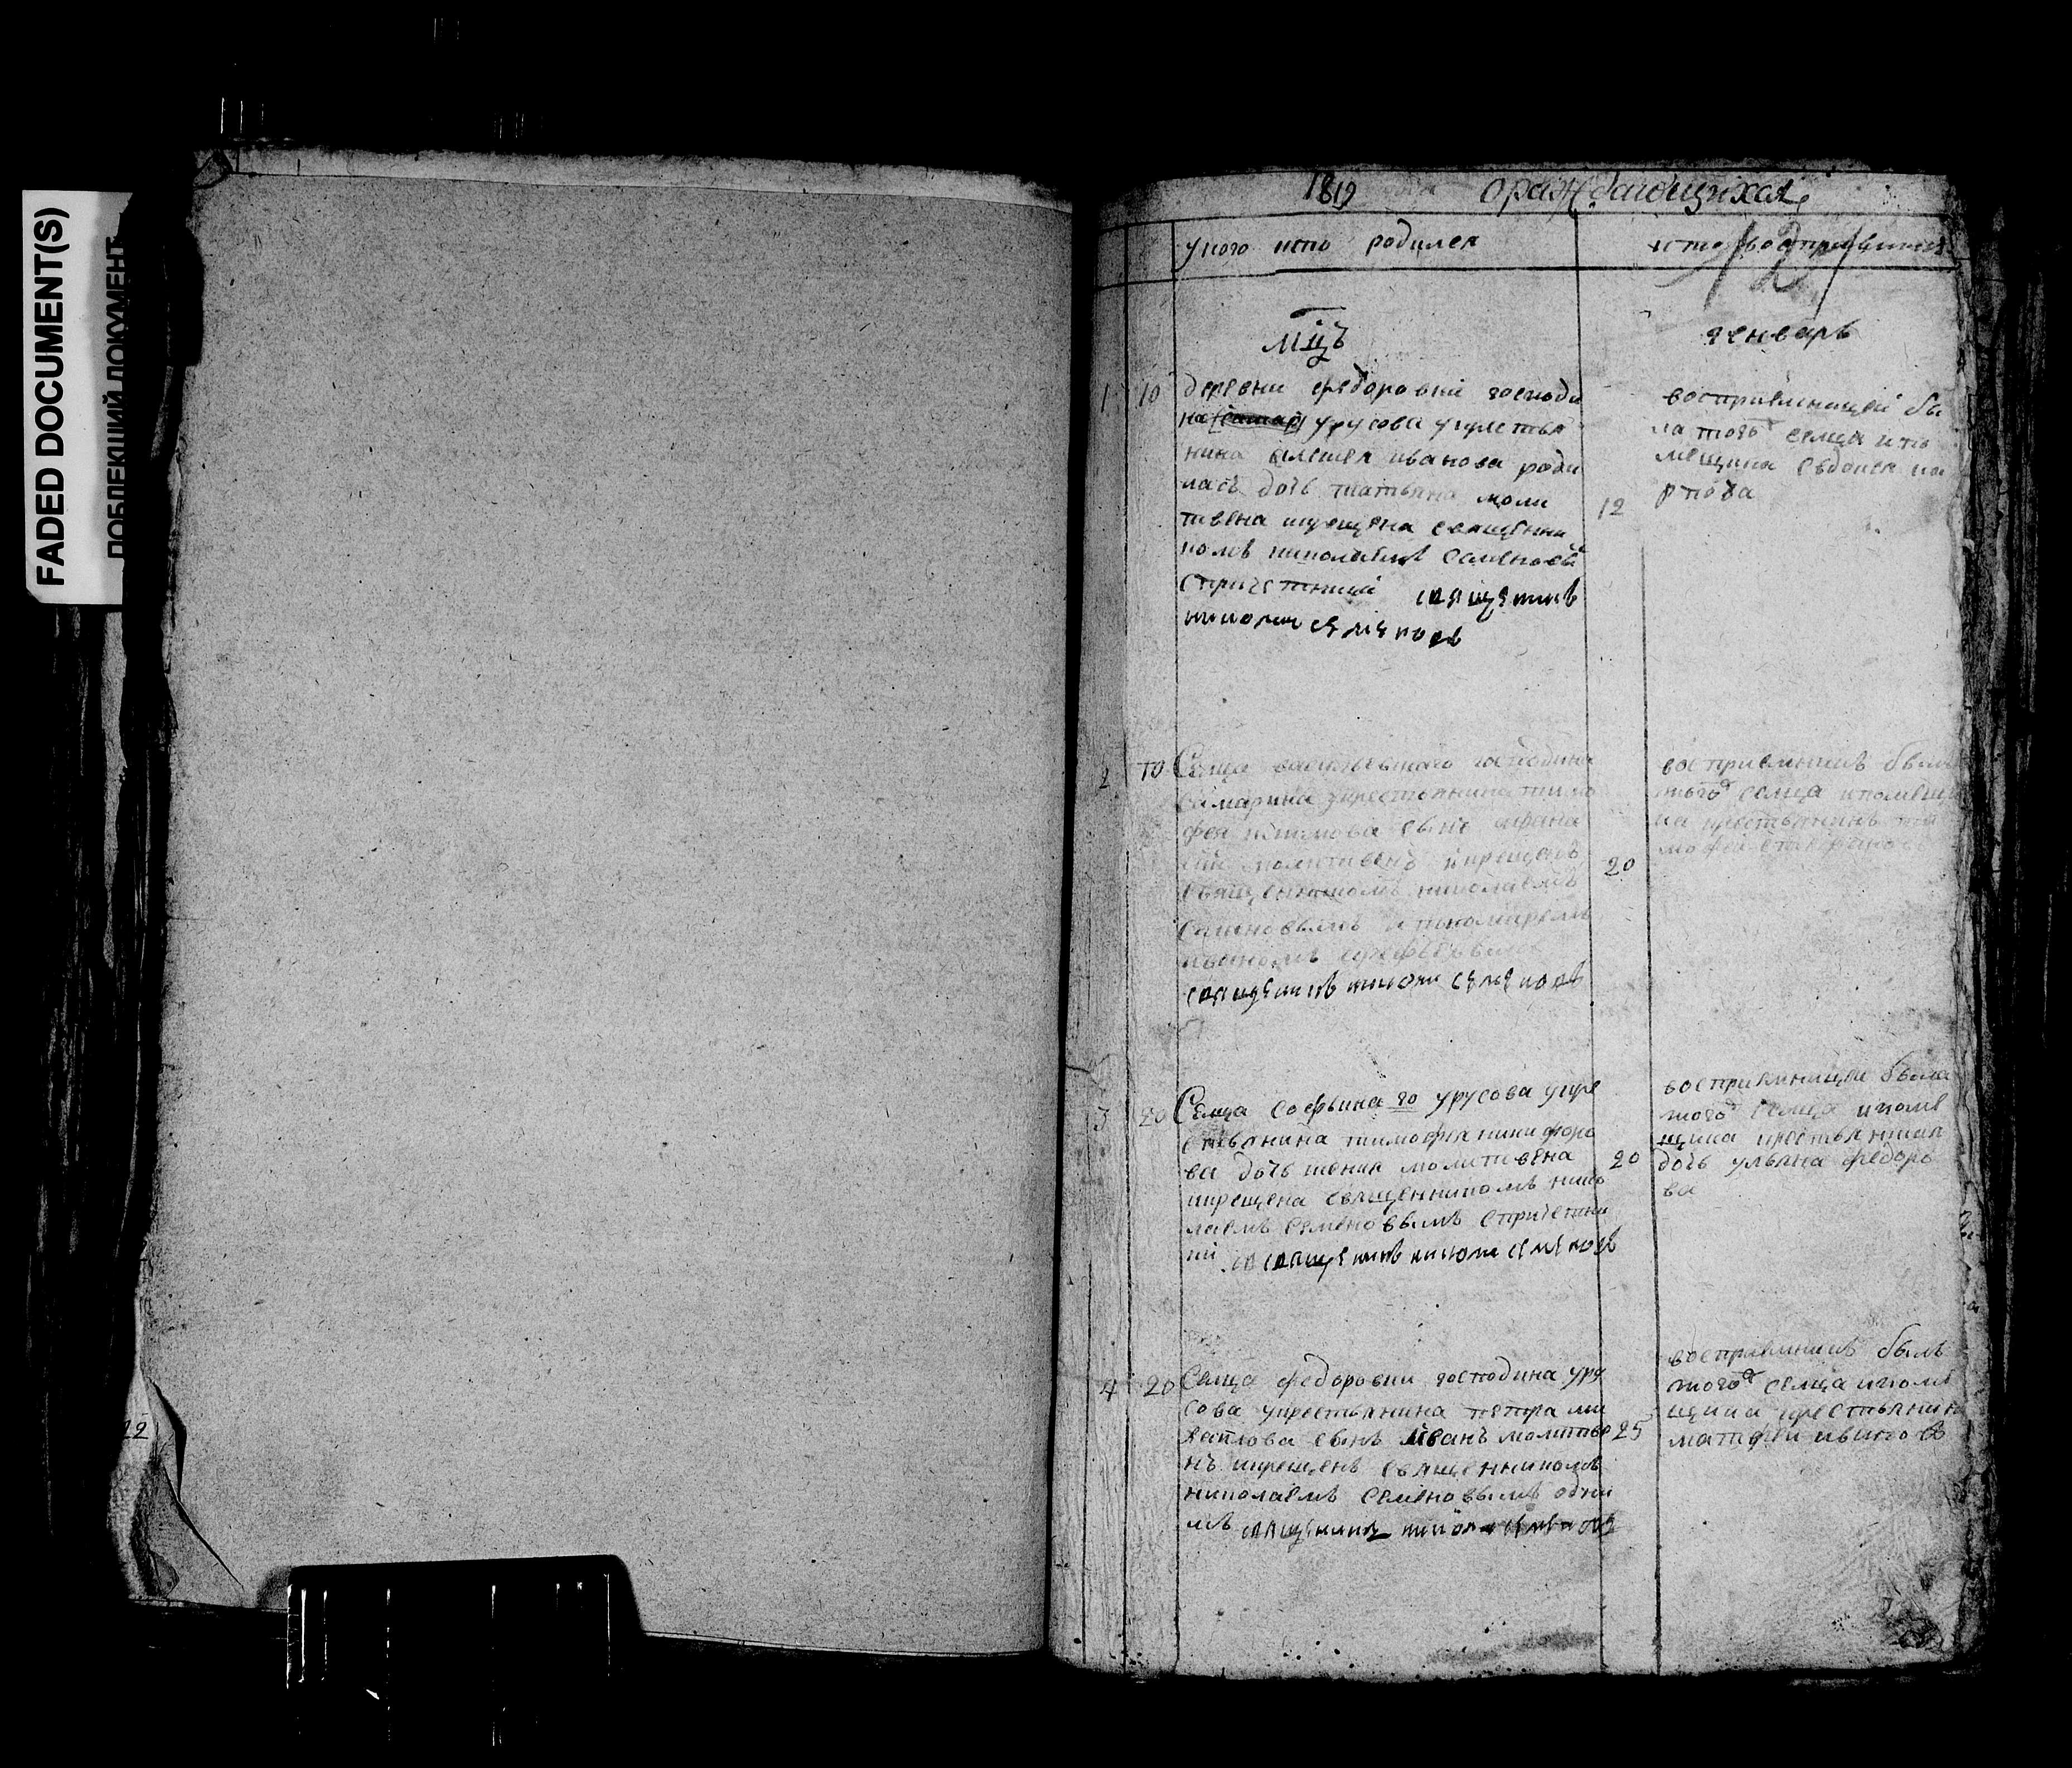 FADED DOCUMENT(S)
ПОБЛЕКШИЙ ДОКУМЕНТ
1819 ораждающихся
у кого кто родился
мцъ генварь
1 10 деревни федоровки господи
на урусова укрестья
нина алексея иванова роди
лась дочь татьяна моли
твена икрещена священни
комъ николаемъ семеновы
спричетники священникъ
николаи семеновъ
восприемницей бы
ла тогоже селца ипо
мещика евдокея ка
рпова
12
2 10 Селца господина
самарина укрестьянина тимо
фея сынъ афана
сий молитвенъ икрещенъ
священникомъ николаемъ
семеновымъ ипономаремъ
иваномъ
священникъ николаи семеновъ
восприемникъ былъ
тогоже селца ипомещи
ка крестьянинъ
20
3 20 Селца софьина го урусова укре
стьянина тимофея никифоро
ва дочь ксения молитвена
икрещена священникомъ нико
лаемъ семеновымъ спричетни
ки священникъ николаи семеновъ
восприемницей была
тогоже селца ипоме
щика крестьянина
дочь ульяна федоро
ва
20
4 20 Селца федоровки господина уру
сова укрестьянина петра ми
хаилова сынъ иванъ молитве
нъ икрещенъ священникомъ
николаемъ семеновымъ одни
мъ священникъ николаи семеновъ
восприемникъ былъ
тогоже селца ипоме
щика крестьянинъ
матфеи
25
12